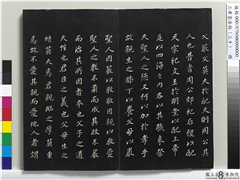 父嚴父莫大於配天則周公其
人也昔者周公郊祀后稷以配
天宗祀文王於明堂以配上帝
是以四海之內各以其職來祭
夫聖人之德又何以加於孝乎
故親生之膝下以養父母日嚴
聖人因嚴以教敬因親以教愛
聖人之教不肅而成其政不嚴
而治其所因者本也父子之道
天性也君臣之義也父母生之
續莫大焉君親臨之厚莫重
焉故不愛其親而愛他人者謂